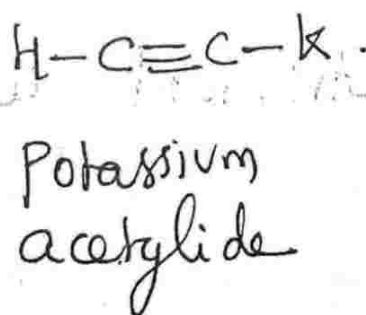 H-C≡C-K.
Potassium
acetylide